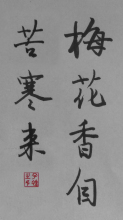 梅花香自
苦寒来